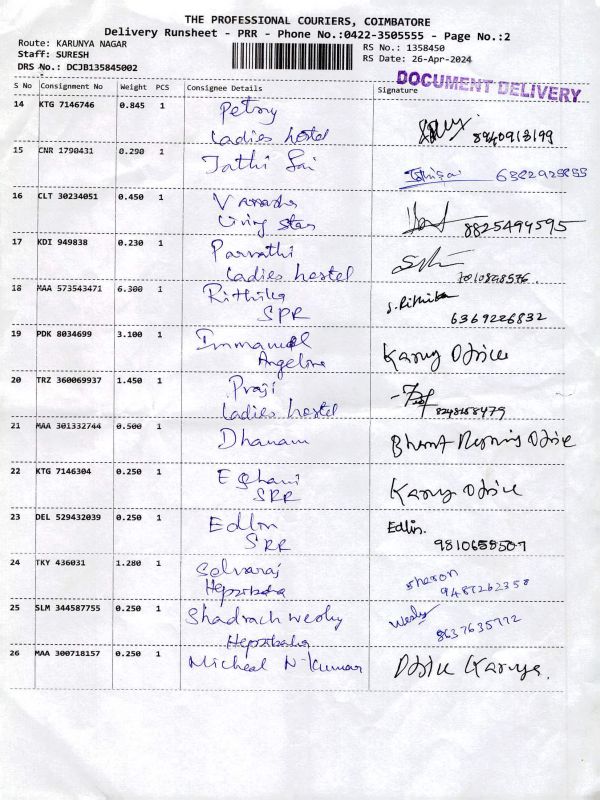 THE PROFESSIONAL COURIERS, COIMBATORE
Delivery Runsheet - PRR - Phone No.:0422-3505555 - Page No.:2
Route: KARUNYA NAGAR
Staff: SURESH
DRS No.: DCJB135845002
RS No.: 1358450
RS Date: 26-Apr-2024
DOCUMENT DELIVERY
S No Consignment No Weight PCS Consignee Details Signature
14 KTG 7146746 0.845 1
Ladies hostel 8940913199
15 CNR 1790431 0.290 1 Jathi Sai
16 CLT 30234051 0.450 1
Living Star 8825494595
17 KDI 949838 0.230 1 Parvathi
Ladies hostel
18 MAA 573543471 6.300 1 Rithika S. Rithika
SPR 6369226832
19 PDK 8034699 3.100 1 Immanuel
Angeline
20 TRZ 360069937 1.450 1 Praji
Ladies hostel
21 MAA 301332744 0.500 1 Dhanam
22 KTG 7146304 0.250 1
SRR
23 DEL 529432039 0.250 1 Edlin Edlin.
SRR
24 TKY 436031 1.280 1 Selvaraj Sharon
Hepzibaha
25 SLM 344587755 0.250 1 Shadrach wesly Wesly
Hepzibaha 8637635772
26 MAA 300718157 0.250 1 Micheal N-Kumar